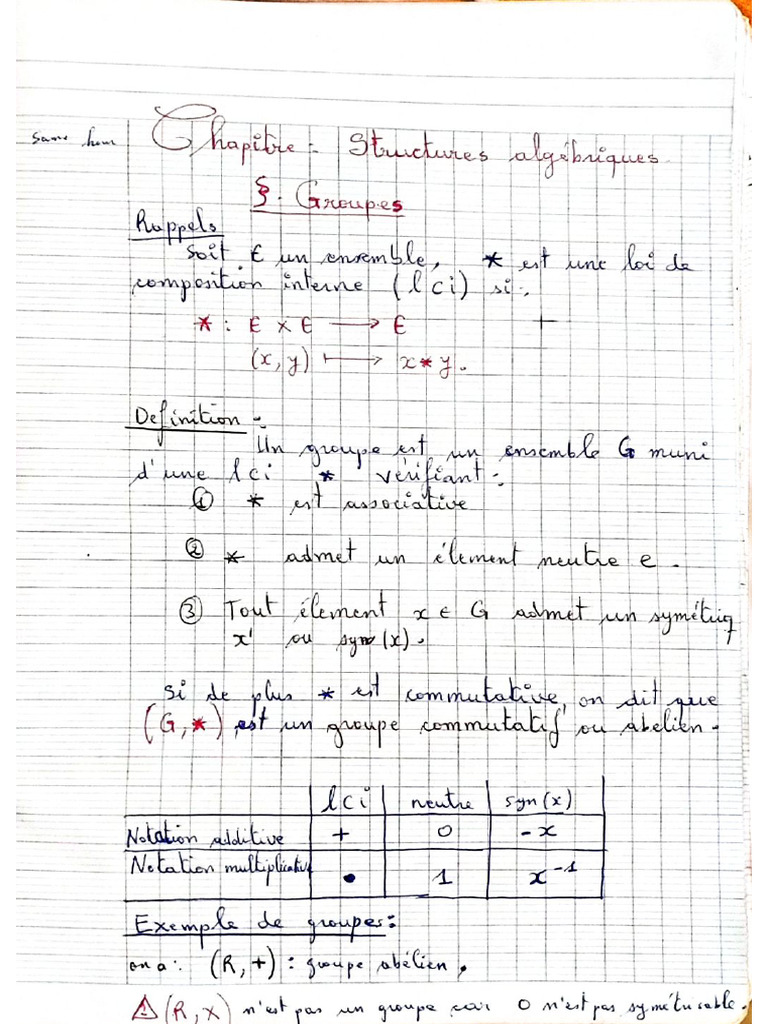 Chapitre - Structures algébriques.
§. Groupes
Rappels
Soit E un ensemble, * est une loi de
composition interne (lci) si :
* : E x E → E
(x, y) ↦ x * y.
Definition :
Un groupe est un ensemble G muni
d'une lci * vérifiant :
① * est associative
② * admet un élement neutre e.
③ Tout élement x ∈ G admet un symétriq
x' ou sym(x).
Si de plus * est commutative, on dit que
(G, *) est un groupe commutatif ou abelien.
lci neutre syn(x)
Notation additive + 0 -x
Notation multiplicative • 1 x⁻¹
Exemple de groupes :
on a : (R, +) : groupe abélien.
⚠ (R, x) n'est pas un groupe car 0 n'est pas symétrisable.